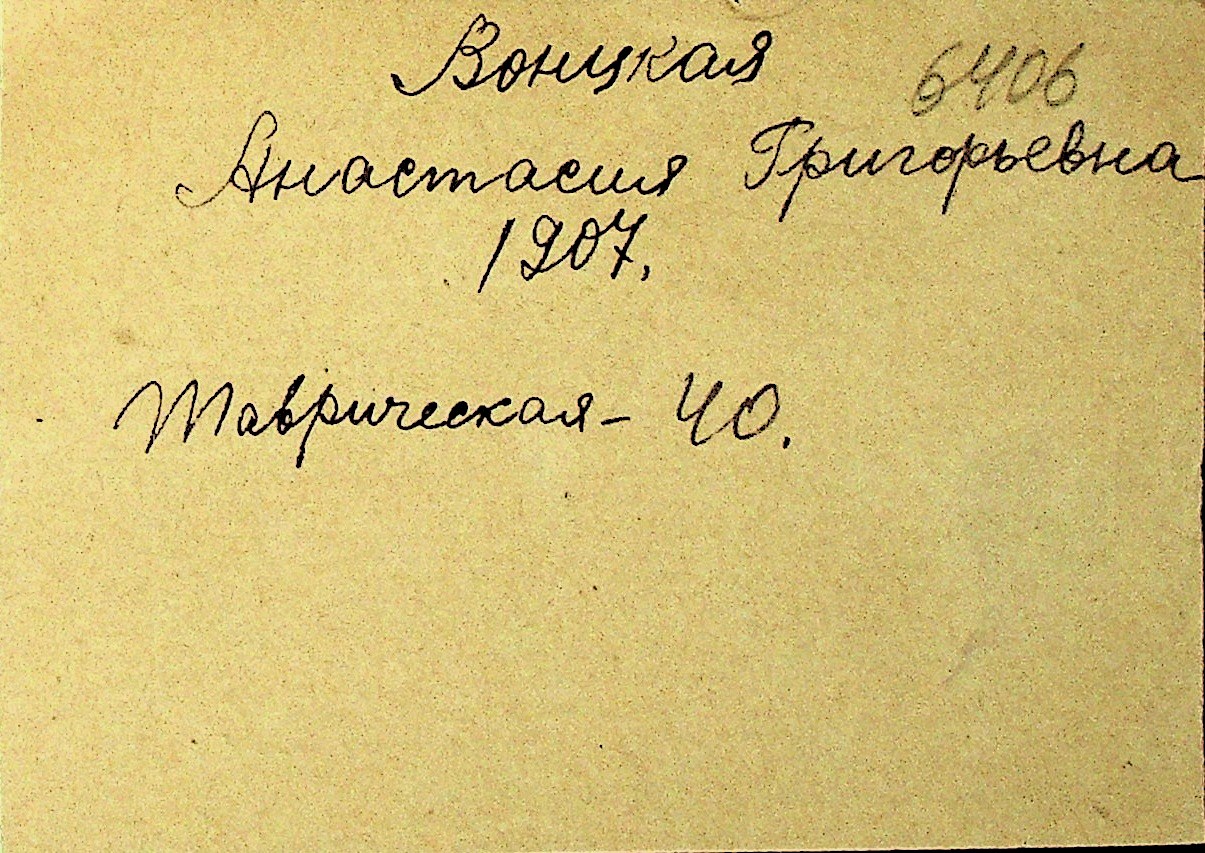 Вонцкая
6406
Анастасия Григорьевна
1907.
Таврическая - 40.